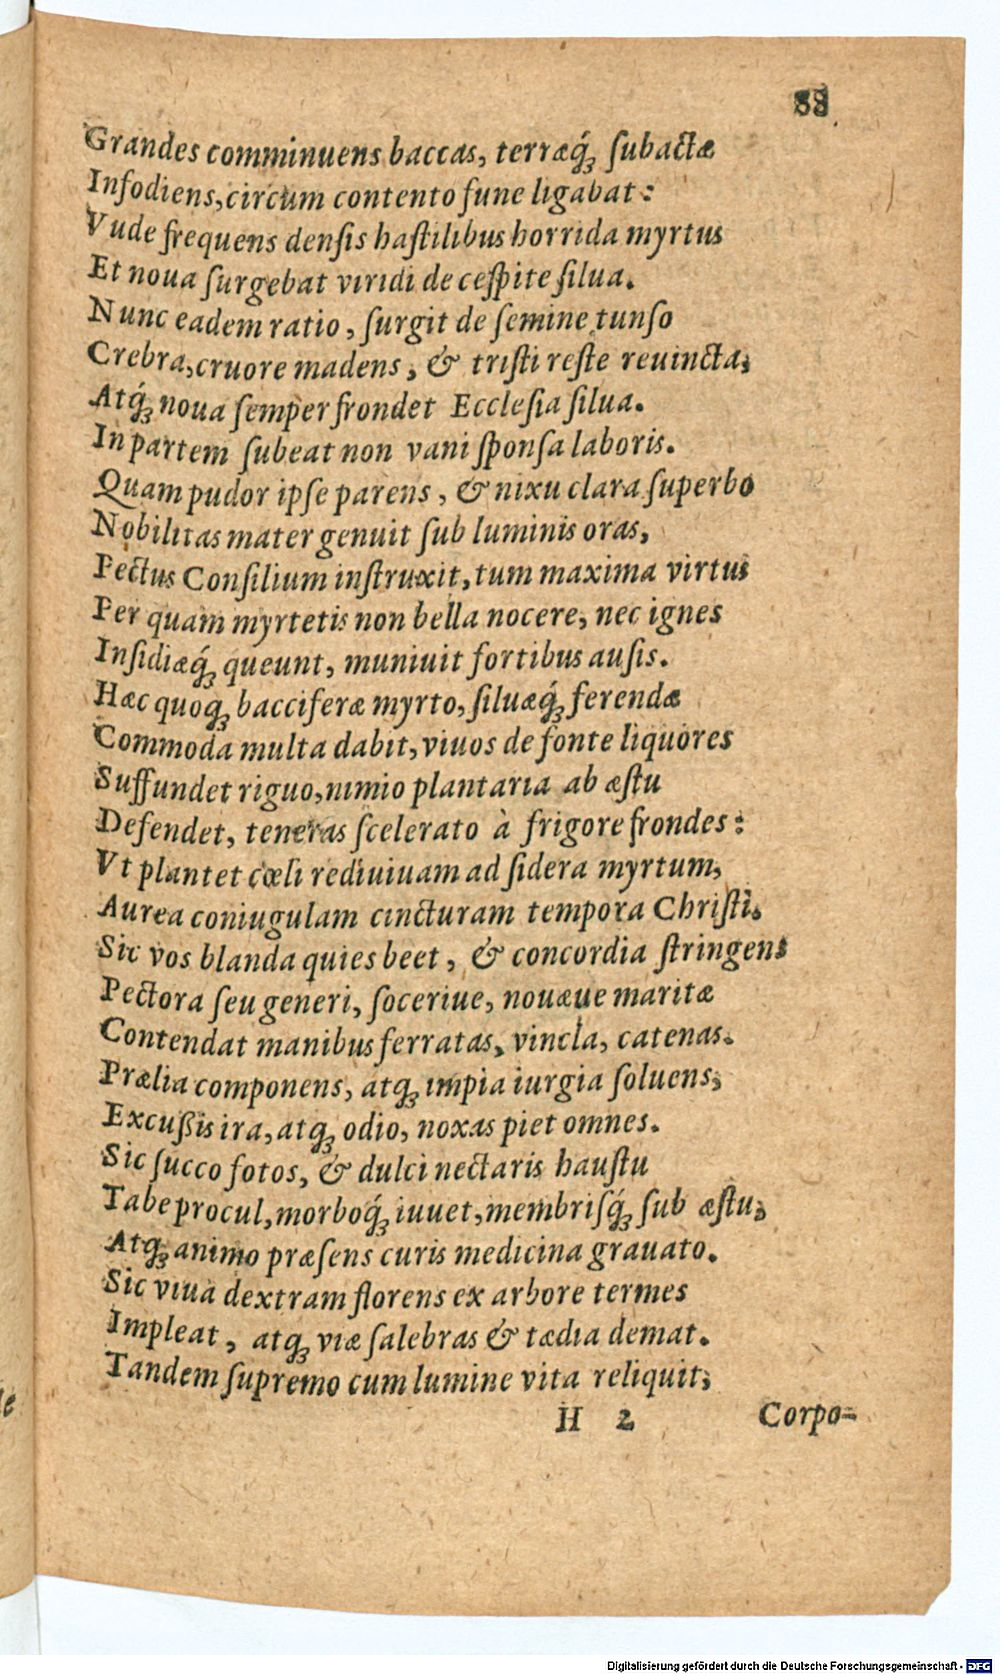 88
Grandes comminuens baccas, terræq́ꝫ ſubactæ
Infodiens, circum contento fune ligabat:
Vude frequens denſis haſtilibus horrida myrtus
Et noua ſurgebat viridi de ceſpite ſilua.
Nunc eadem ratio, ſurgit de ſemine tunſo
Crebra, cruore madens, & triſti reſte reuincta;
Atq́ꝫ noua ſemper frondet Eccleſia ſilua.
In partem ſubeat non vani ſponſa laboris.
Quam pudor ipſe parens, & nixu clara ſuperbo
Nobilitas mater genuit ſub luminis oras,
Pectus Conſilium inſtruxit, tum maxima virtus
Per quam myrtetis non bella nocere, nec ignes
Inſidiæq́ꝫ queunt, muniuit fortibus auſis.
Hæc quoqꝫ bacciferæ myrto, ſiluæq́ꝫ ferendæ
Commoda multa dabit, viuos de fonte liquores
Suffundet riguo, nimio plantaria ab æſtu
Defendet, teneras ſcelerato à frigore frondes:
Vt plantet cœli rediuiuam ad ſidera myrtum,
Aurea coniugulam cincturam tempora Chriſti.
Sic vos blanda quies beet, & concordia ſtringens
Pectora ſeu generi, ſoceriue, nouæue maritæ
Contendat manibus ferratas, vincla, catenas.
Prælia componens, atqꝫ impia iurgia ſoluens;
Excußis ira, atqꝫ odio, noxas piet omnes.
Sic ſucco fotos, & dulci nectaris hauſtu
Tabe procul, morboq́ꝫ iuuet, membriſq́ꝫ ſub æſtu;
Atqꝫ animo præſens curis medicina grauato.
Sic viua dextram florens ex arbore termes
Impleat, atqꝫ viæ ſalebras & tædia demat.
Tandem ſupremo cum lumine vita reliquit;
H 2 Corpo-
Digitalisierung gefördert durch die Deutsche Forschungsgemeinschaft - DFG